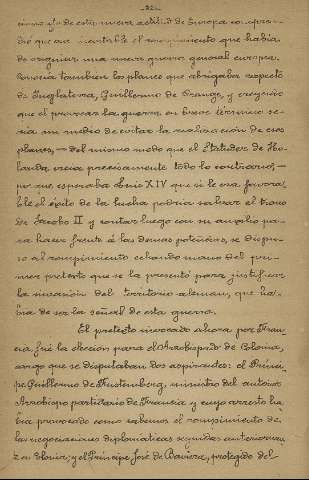 -82-
cimo y lo de esta nueva actitud de Europa compren-
dió que era inevitable el rompimiento que había
de originar una nueva guerra general europea.
Conocía tambien los planes que abrigaba respecto
de Inglaterra, Guillermo de Orange, y creyendo
que el provocar la guerra en breve término se-
ría un medio de evitar la realizacion de esos
planes, — del mismo modo que el Estatuder de Ho-
landa creía precisamente todo lo contrario, —
por que esperaba Luis XIV que si le era favora-
ble el éxito de la lucha podría salvar el trono
de Jacobo II y contar luego con su auxilio pa-
ra hacer frente á las demas potencias, se dispu-
so al rompimiento echando mano del pri-
mer pretesto que se le presentó para justificar
la invasión del territorio aleman, que ha-
bía de ser la señal de esta guerra.
El pretesto invocado ahora por Fran-
cia, fué la eleccion para el Arzobispado de Colonia,
cargo que se disputaban dos aspirantes: el Prínci-
pe Guillermo de Furstemberg, ministro del anterior
Arzobispo partidario de Francia y cuyo arresto ha-
bía provocado como sabemos el rompimiento de
las negociaciones diplomáticas seguidas anteriormen-
te en Colonia; y el Príncipe José de Baviera, protegido del